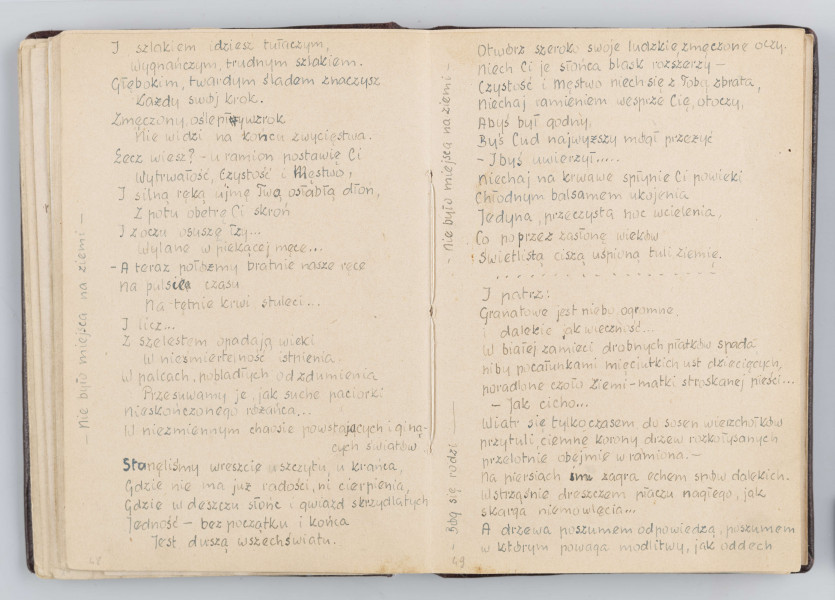 I szlakiem idziesz tułaczym,
Wygnańczym, trudnym szlakiem.
Głębokim, twardym śladem znaczysz
Każdy swój krok.
Zmęczony, oślepły wzrok
Nie widzi na końcu zwycięstwa.
Lecz wiesz? - u ramion postawię Ci
Wytrwałość, Czystość i Męstwo,
I silną ręką ujmę Twą osłabłą dłoń,
Z potu obetrę Ci skroń
I z oczu osuszę łzy...
Wylane w piekącej męce...
- A teraz połóżmy bratnie nasze ręce
Na pulsie czasu
Na tętnie krwi stuleci...
I licz...
Z szelestem opadają wieki
W nieśmiertelność istnienia.
W palcach, pobladłych od zdumienia
Przesuwamy je, jak suche paciorki
Nieskończonego różańca...
W niezmiennym chaosie powstających i giną-
cych światów
Stanęliśmy wreszcie u szczytu, u krańca,
Gdzie nie ma już radości, ni cierpienia,
Gdzie w deszczu słońc i gwiazd skrzydlatych
Jedność - bez początku i końca
Jest duszą wszechświatu.
- Nie było miejsca na ziemi -
48
Otwórz szeroko swoje ludzkie, zmęczone oczy.
Niech Ci je słońca blask rozszerzy -
Czystość i Męstwo niech się z Tobą zbrata,
Niechaj ramieniem wesprze Cię, otoczy,
Abyś był godny,
Byś Cud najwyższy mógł przeżyć
- I byś uwierzył.....
Niechaj na krwawe spłynie Ci powieki
Chłodnym balsamem ukojenia
Jedyna, przeczysta noc wcielenia,
Co poprzez zasłonę wieków
Świetlistą ciszą uśpioną tuli ziemię.
. . . . . . . . . . . . . . . .
I patrz:
Granatowe jest niebo, ogromne,
i dalekie jak wieczność...
W białej zamieci drobnych płatków spada
niby pocałunkami mięciutkich ust dziecięcych,
poradlone czoło Ziemi-matki stroskanej pieści...
- Jak cicho...
Wiatr się tylko czasem do sosen wierzchołków
przytuli, ciemne korony drzew rozkołysanych
przelotnie obejmie w ramiona. -
Na piersiach im zagra echem snów dalekich.
Wstrząśnie dreszczem płaczu nagłego, jak
skarga niemowlęcia...
A drzewa poszumem odpowiedzą, poszumem
w którym powaga modlitwy, jak oddech
- Nie było miejsca na ziemi -
- Bóg się rodzi -
49